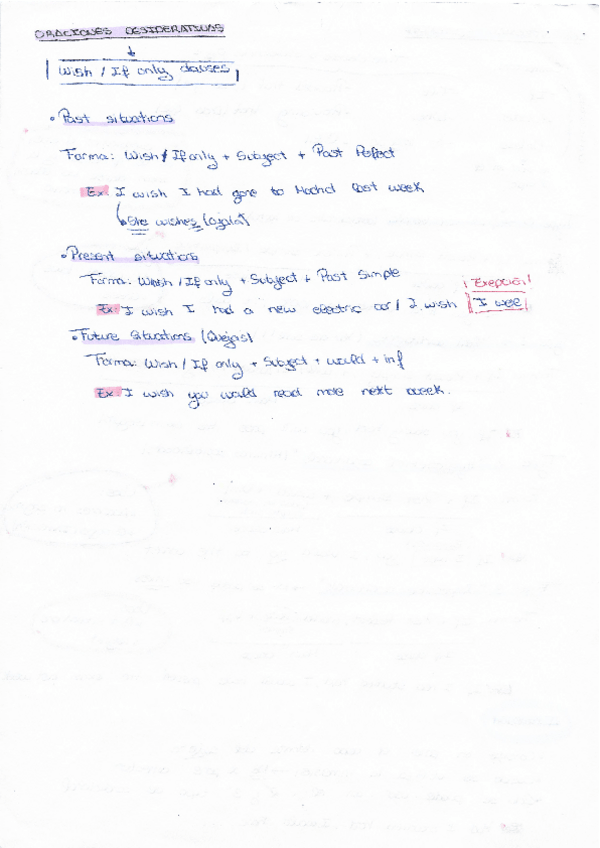 ORACIONES DESIDERATIVAS
Wish / If only clauses
• Past situations
Forma: Wish / If only + Subject + Past Perfect
Ex: I wish I had gone to Madrid last week
She wishes (Ojalá)
• Present situations
Forma: Wish / If only + Subject + Past Simple
¡Exepción!
Ex: I wish I had a new electric car / I wish I were
• Future situations (Quejas)
Forma: Wish / If only + Subject + would + inf
Ex: I wish you would read more next week.